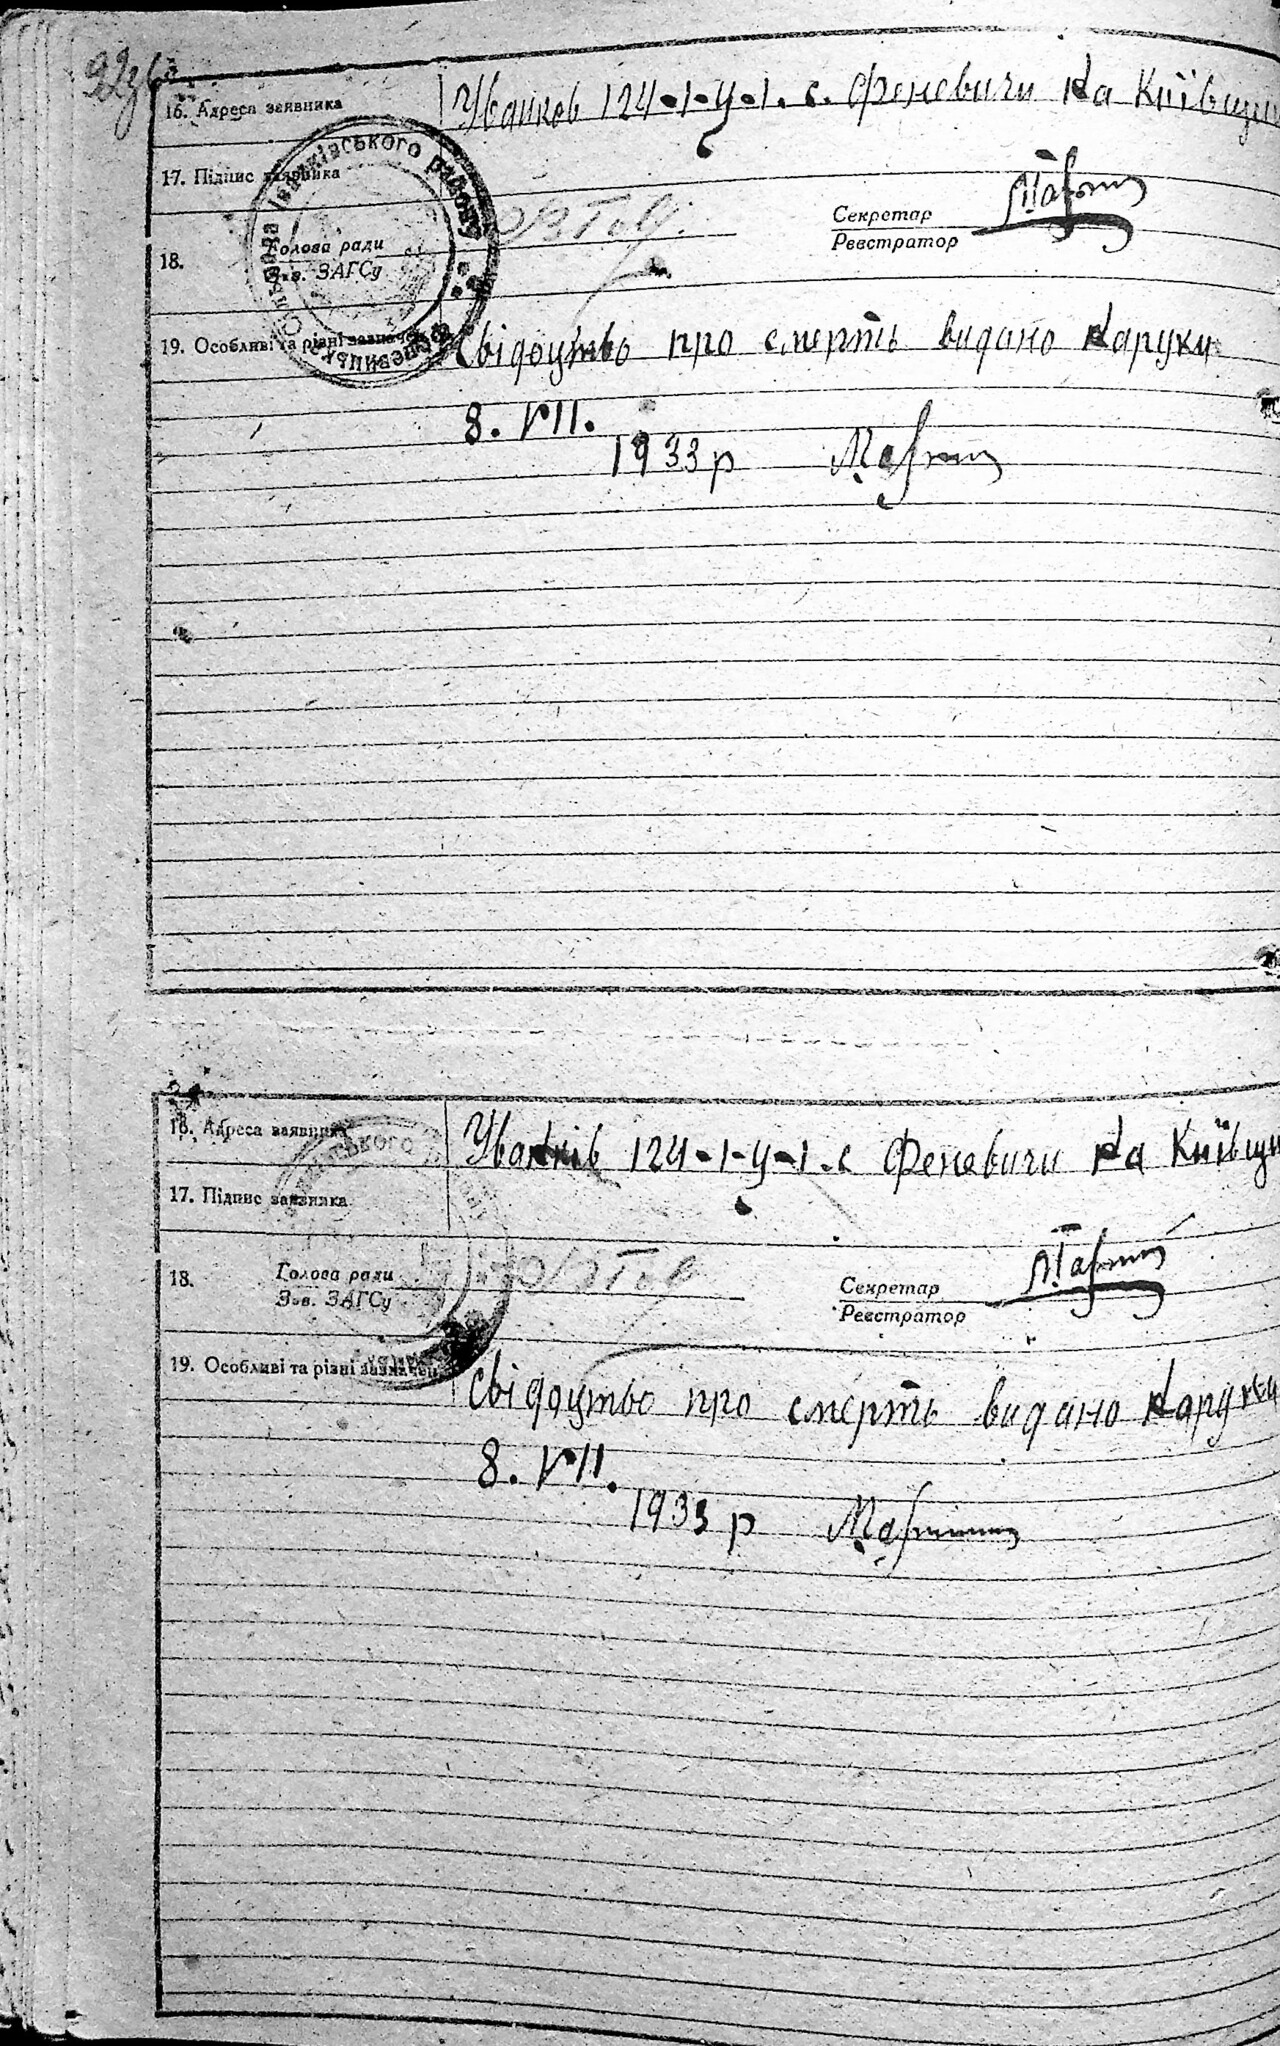 16. Адреса заявника
Уванков 124-1-у-1. с. Феневичи на Київщи
17. Підпис заявника
18.
Голова ради
Зав. ЗАГСу
Секретар
Реєстратор
19. Особливі та різні зазнач
Свідоутво про смерть видано наруки
8. VII.
1933 р
Іванківського району
16. Адреса заявника
Уванків 124-1-у-1. с Феневичи на Київщи
17. Підпис заявника
18.
Голова ради
Зав. ЗАГСу
Секретар
Реєстратор
19. Особливі та різні зазначен
Свідоутво про смерть видано наруки
8. VII.
1933 р